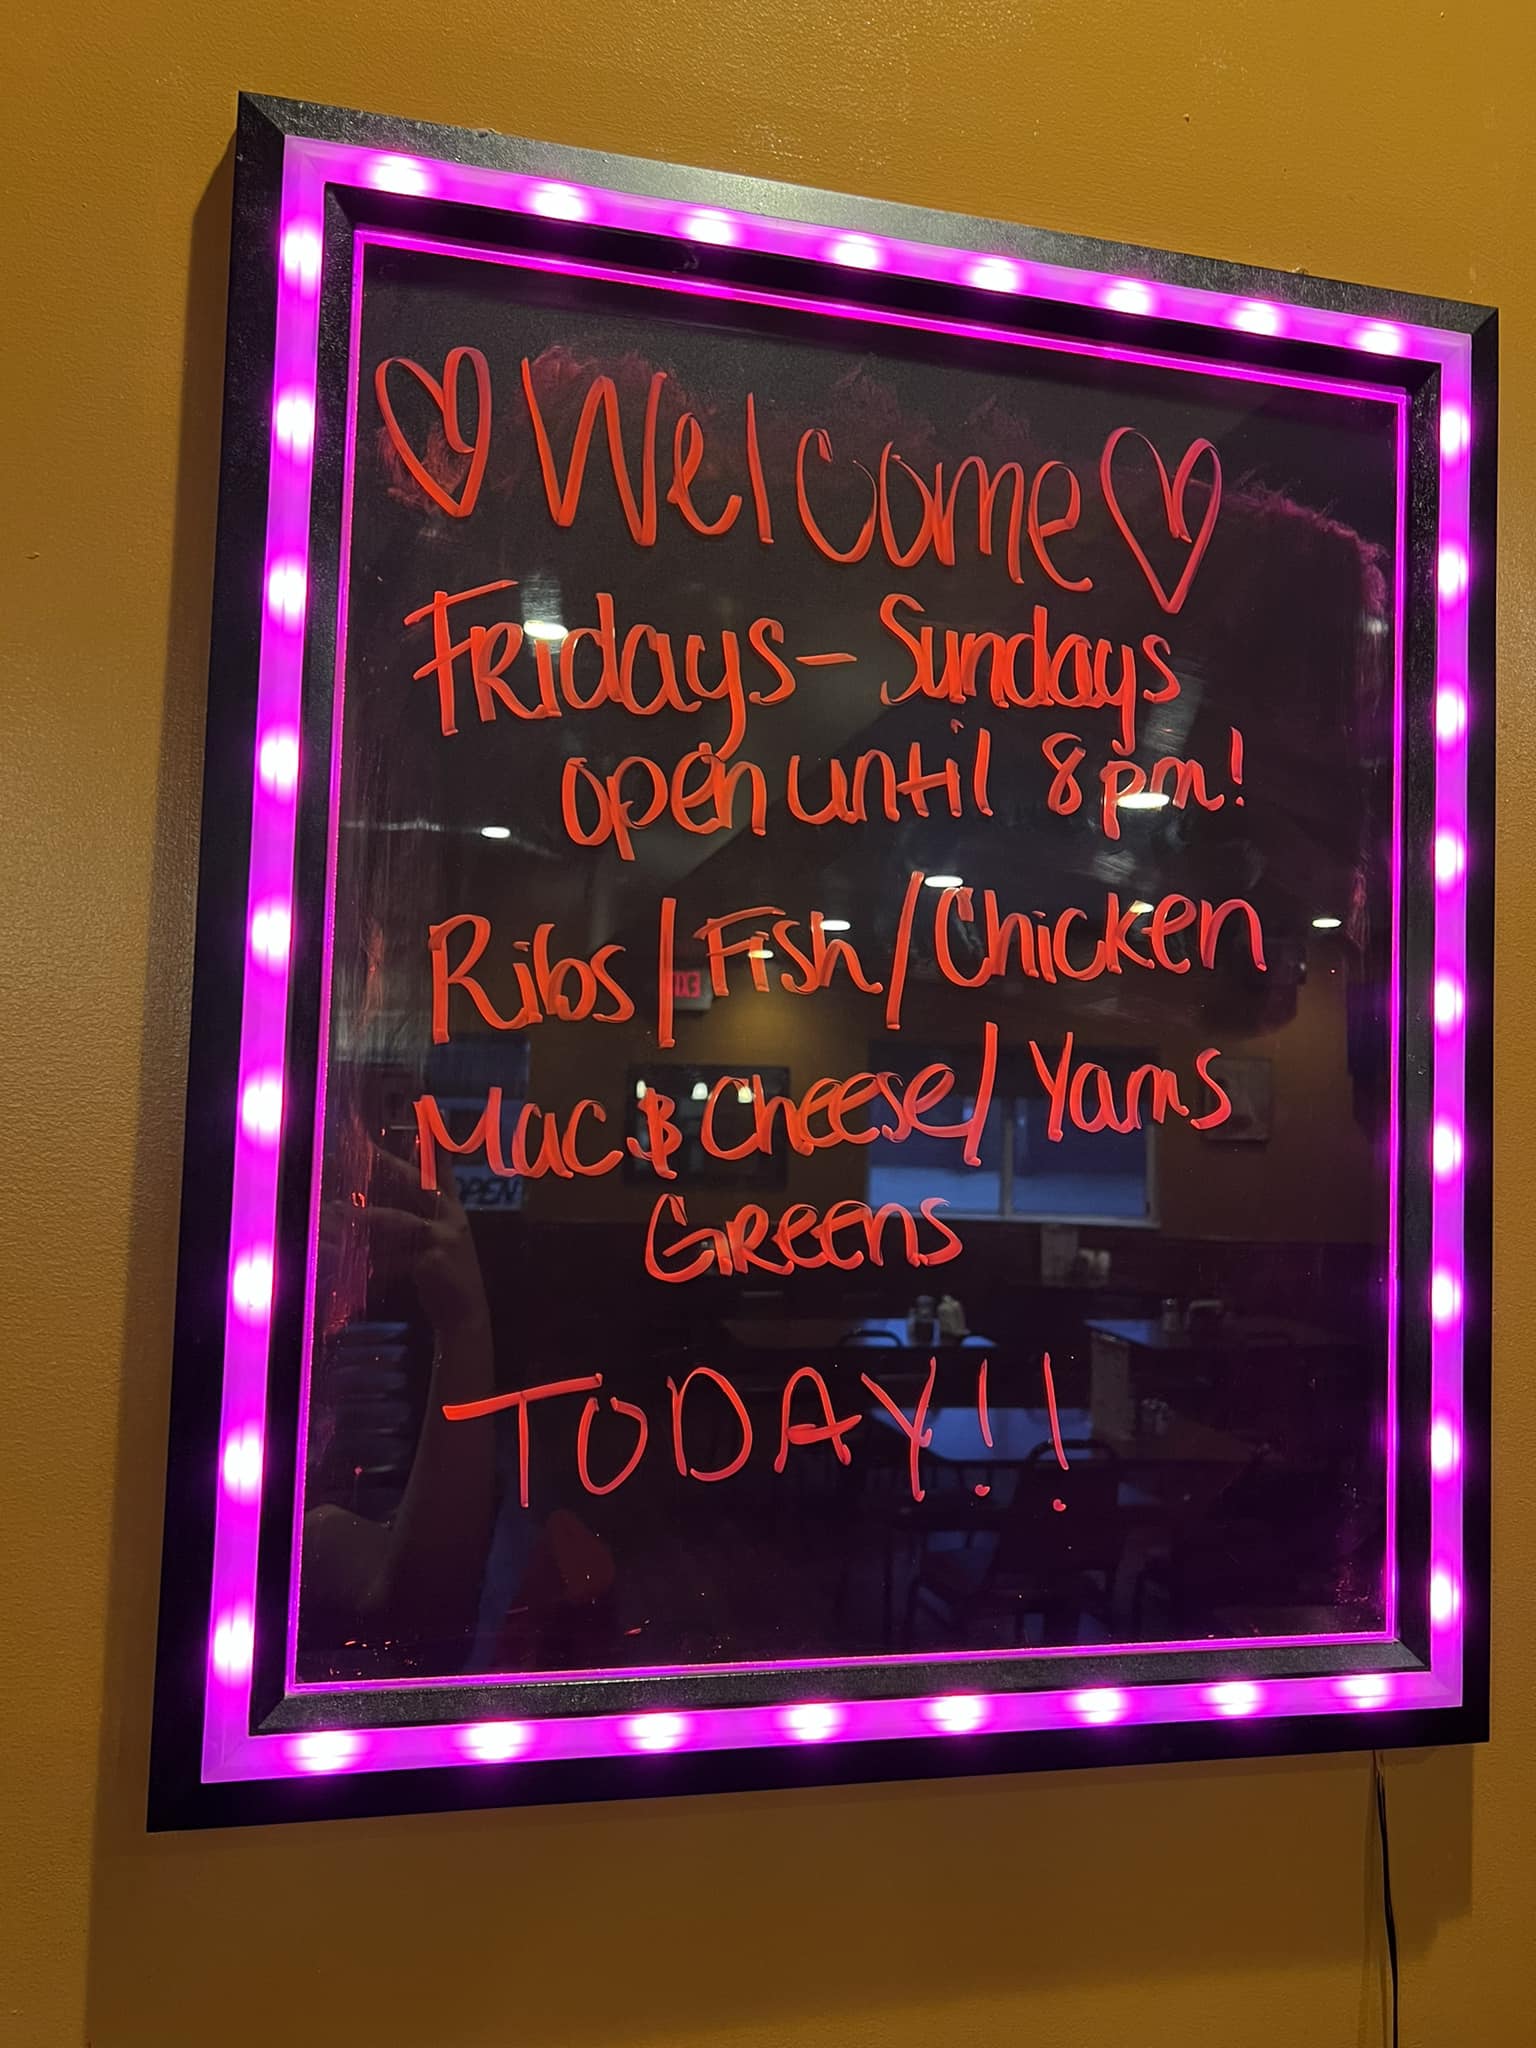 ♡ Welcome ♡
Fridays - Sundays
open until 8pm!
Ribs / Fish / Chicken
Mac & Cheese / Yams
Greens
TODAY!!
EXIT
OPEN